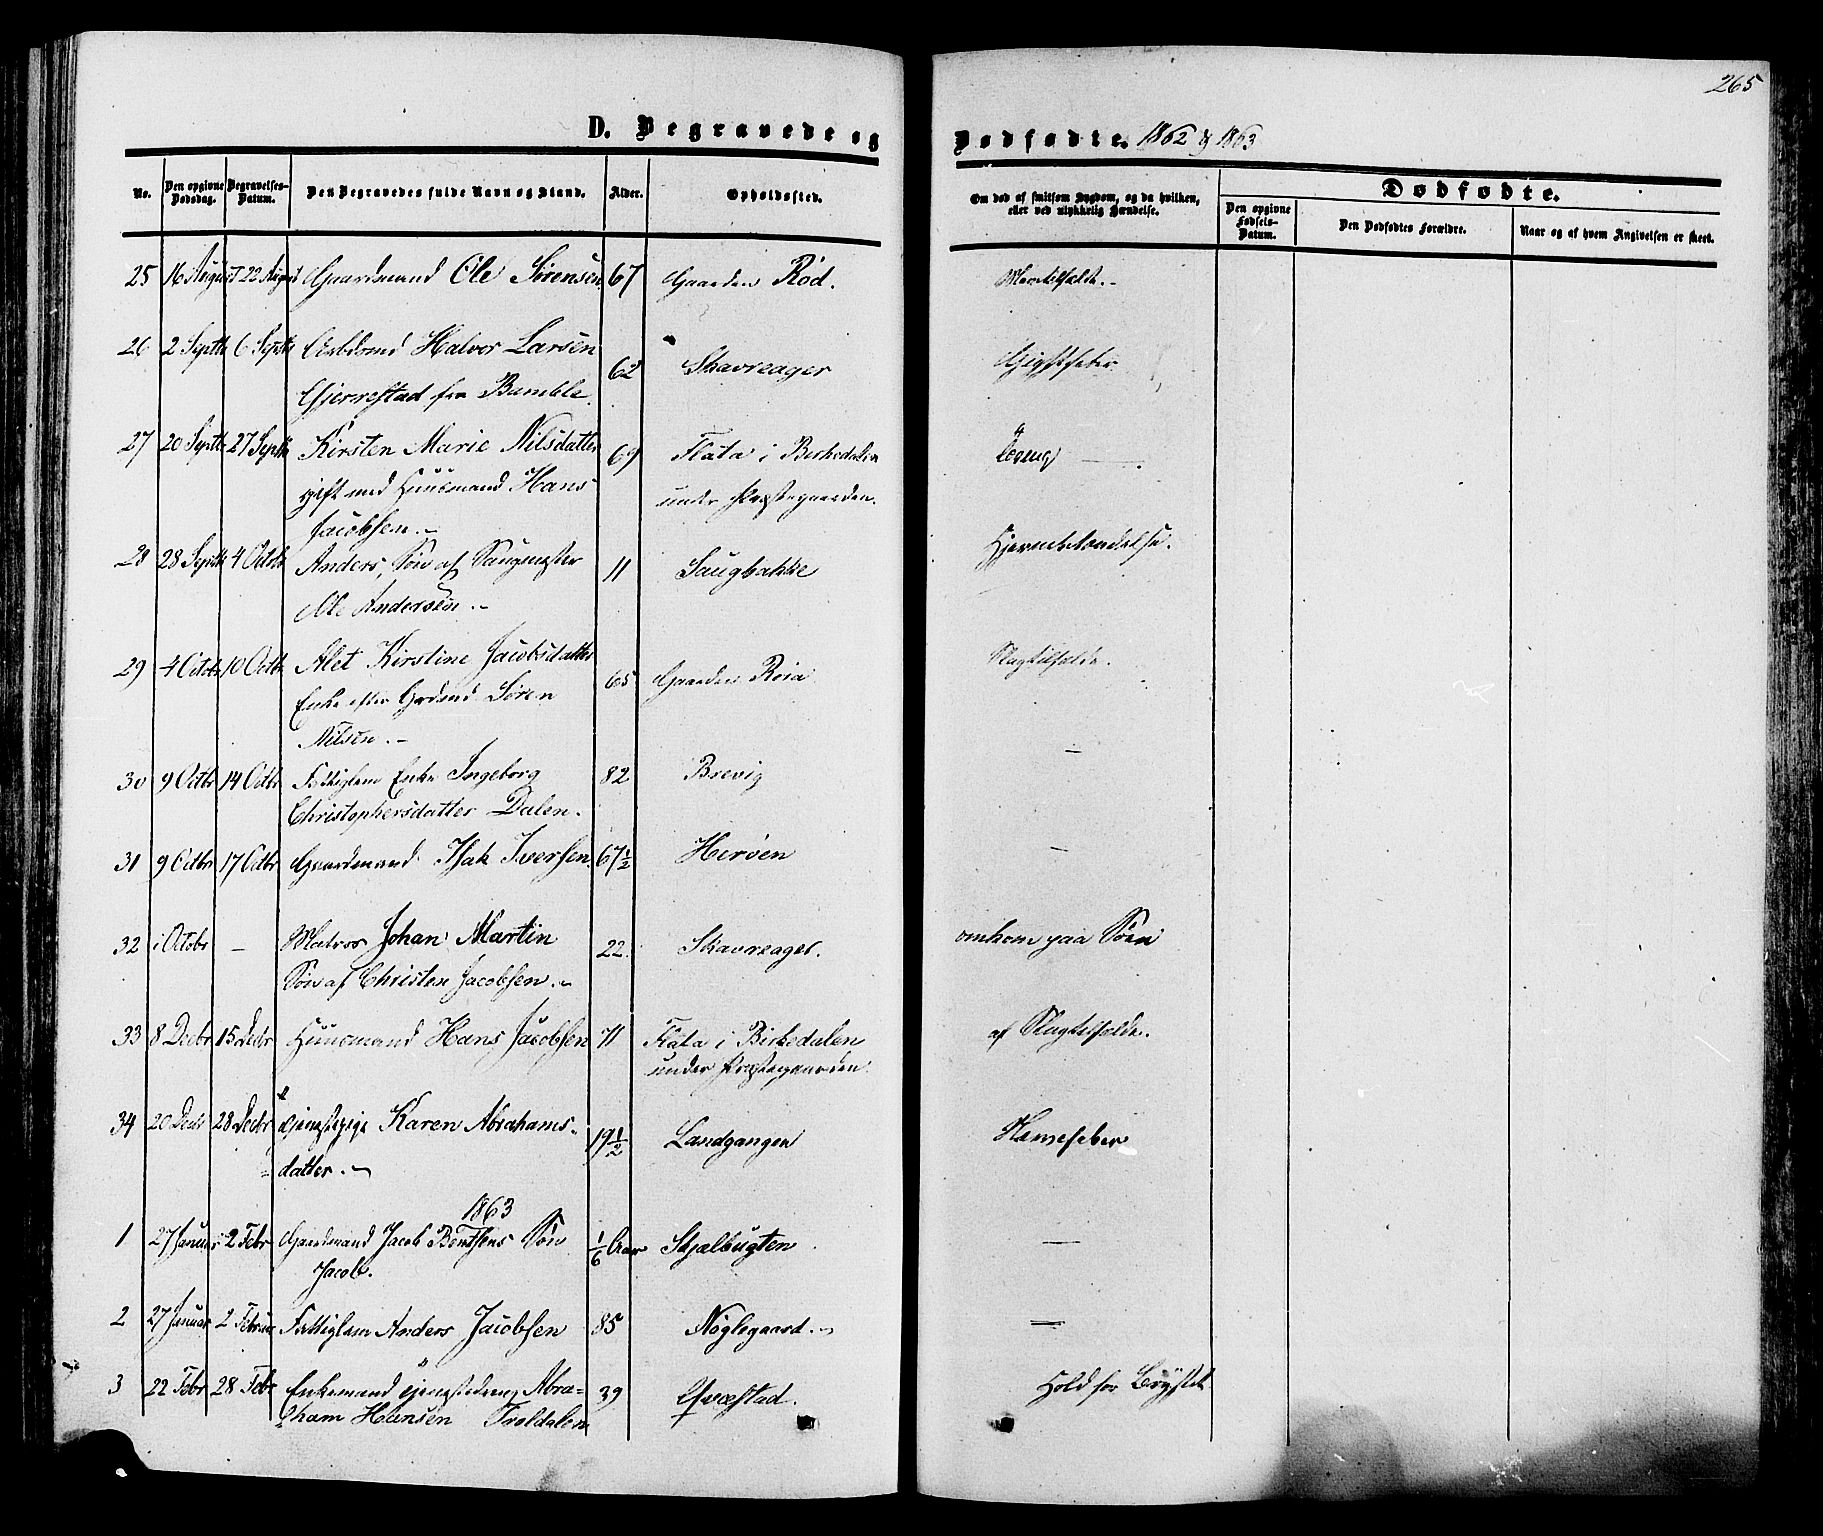 265
D. Begravede og Dødfødte. 1862 & 1863
No. Den opgivne Dødsdag. Begravelses-Datum. Den Begravedes fulde Navn og Stand. Alder. Opholdssted. Om død af smitsom Sygdom, og da hvilken, eller ved ulykkelig Hændelse. Dødfødte.
Den opgivne Fødsels-Datum. Den Dødfødtes Forældre. Naar og af hvem Angivelsen er skeet.
25 16 August 22 August Gaardmand Ole Sörensen 67 Gaarden Röd.
26 2 Septbr 6 Septbr Arbdsmd Halvor Larsen 62 Skavreager Gigtfeber
Gjerrestad fra Bamble.
27 20 Septbr 27 Septbr Kirsten Marie Nilsdatter 69 Flata i Birkedalen
gift med Huusmand Hans under Præstegaarden.
Jacobsen.-
28 28 Septbr 4 Octbr Anders, Sön af Saugmester 11 Saugbakke Hjernebetændelse.
Ole Andersen.-
29 4 Octbr 10 Octbr Alet Kirstine Jacobsdatter 65 Gaarden Röra Slagtilfælde.
Enke efter Grdmd Sören
Nilsen.-
30 9 Octbr 14 Octbr Fattiglem Enke Ingeborg 82 Brevig -
Christophersdatter Dalen.
31 9 Octbr 17 Octbr Gaardmand Isak Iversen 67 1/2 Heröen -
32 i Octobr - Matros Johan Martin 22. Skavreager. omkom paa Söen
Sön af Christen Jacobsen.-
33 8 Decbr 15 Decbr Huusmand Hans Jacobsen 71 Flata i Birkedalen af Slagtilfælde.
under Præstegaarden.
34 20 Decbr 28 Decbr tjenestepige Karen Abrahams- 19 1/2 Landgangen
datter.-
1863
1 27 Januar 2 Febr Gaardmand Jacob Bentsens Sön 1/6 Aar Skjælbugten -
Jacob.
2 27 Januar 2 Februar Fattiglem Anders Jacobsen 85 Nöglegaard.- -
3 22 Febr 28 Febr Enkemand Abra- 39 Qvæstad. Hold for Brystet
ham Hansen Troldalen